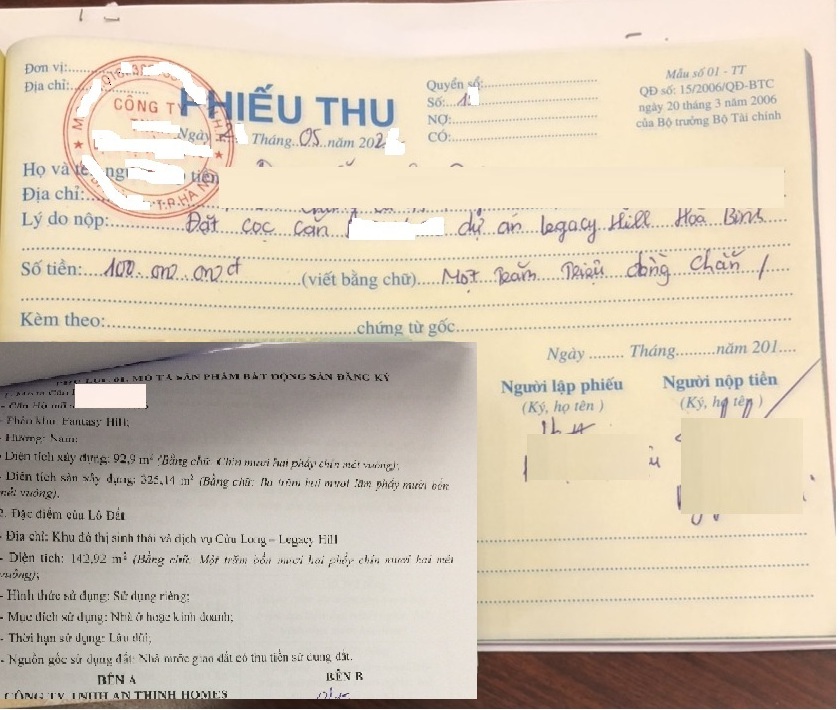 Đơn vị:
Địa chỉ:
CÔNG TY
T.P.HÀ NỘI
PHIẾU THU
Ngày 2 Tháng 05 năm 202
Quyển số:
Số: 1
NỢ:
CÓ:
Mẫu số 01 - TT
QĐ số: 15/2006/QĐ-BTC
ngày 20 tháng 3 năm 2006
của Bộ trưởng Bộ Tài chính
Họ và tê ng tiền
Địa chỉ:
Lý do nộp: Đặt cọc căn dự án legacy Hill Hoà Bình
Số tiền: 100.000.000đ (viết bằng chữ) Một Trăm Triệu đồng Chẵn /
Kèm theo: chứng từ gốc
Ngày Tháng năm 201
Người lập phiếu
(Ký, họ tên )
Người nộp tiền
(Ký, họ tên )
PHỤ LỤC 01. MÔ TẢ SẢN PHẨM BẤT ĐỘNG SẢN ĐĂNG KÝ
- Căn Hộ mã
- Phân khu: Fantasy Hill;
- Hướng: Nam;
- Diện tích xây dựng: 92,9 m² (Bằng chữ: Chín mươi hai phẩy chín mét vuông);
- Diện tích sàn xây dựng: 325,14 m² (Bằng chữ: Ba trăm hai mươi lăm phẩy mười bốn
mét vuông).
2. Đặc điểm của Lô Đất
- Địa chỉ: Khu đô thị sinh thái và dịch vụ Cửu Long – Legacy Hill
- Diện tích: 142,92 m² (Bằng chữ: Một trăm bốn mươi hai phẩy chín mươi hai mét
vuông);
- Hình thức sử dụng: Sử dụng riêng;
- Mục đích sử dụng: Nhà ở hoặc kinh doanh;
- Thời hạn sử dụng: Lâu dài;
- Nguồn gốc sử dụng đất: Nhà nước giao đất có thu tiền sử dụng đất.
BÊN A
BÊN B
CÔNG TY TNHH AN THỊNH HOMES